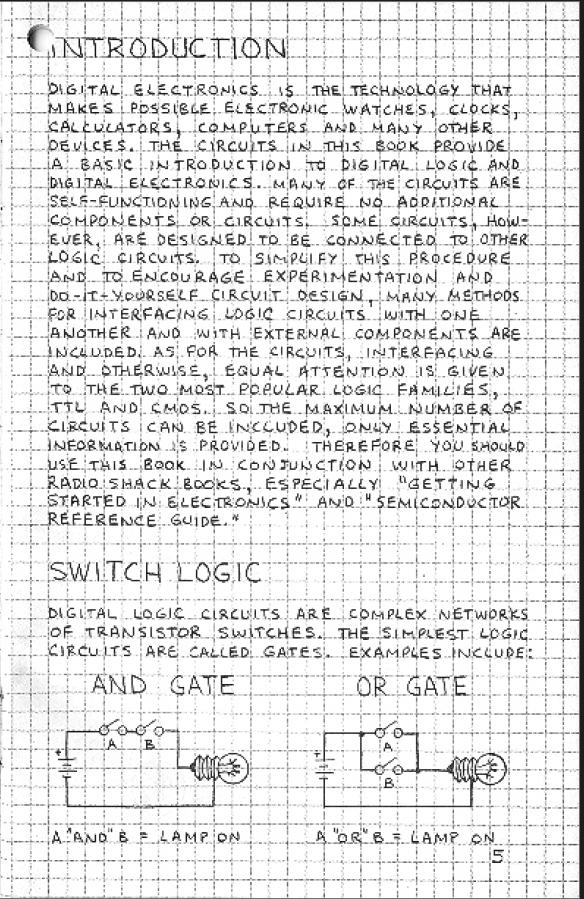 INTRODUCTION
DIGITAL ELECTRONICS IS THE TECHNOLOGY THAT
MAKES POSSIBLE ELECTRONIC WATCHES, CLOCKS,
CALCULATORS, COMPUTERS AND MANY OTHER
DEVICES. THE CIRCUITS IN THIS BOOK PROVIDE
A BASIC INTRODUCTION TO DIGITAL LOGIC AND
DIGITAL ELECTRONICS. MANY OF THE CIRCUITS ARE
SELF-FUNCTIONING AND REQUIRE NO ADDITIONAL
COMPONENTS OR CIRCUITS. SOME CIRCUITS, HOW-
EVER, ARE DESIGNED TO BE CONNECTED TO OTHER
LOGIC CIRCUITS. TO SIMPLIFY THIS PROCEDURE
AND TO ENCOURAGE EXPERIMENTATION AND
DO-IT-YOURSELF CIRCUIT DESIGN, MANY METHODS
FOR INTERFACING LOGIC CIRCUITS WITH ONE
ANOTHER AND WITH EXTERNAL COMPONENTS ARE
INCLUDED. AS FOR THE CIRCUITS, INTERFACING
AND OTHERWISE, EQUAL ATTENTION IS GIVEN
TO THE TWO MOST POPULAR LOGIC FAMILIES,
TTL AND CMOS. SO THE MAXIMUM NUMBER OF
CIRCUITS CAN BE INCLUDED, ONLY ESSENTIAL
INFORMATION IS PROVIDED. THEREFORE YOU SHOULD
USE THIS BOOK IN CONJUNCTION WITH OTHER
RADIO SHACK BOOKS, ESPECIALLY "GETTING
STARTED IN ELECTRONICS" AND "SEMICONDUCTOR
REFERENCE GUIDE."
SWITCH LOGIC
DIGITAL LOGIC CIRCUITS ARE COMPLEX NETWORKS
OF TRANSISTOR SWITCHES. THE SIMPLEST LOGIC
CIRCUITS ARE CALLED GATES. EXAMPLES INCLUDE:
AND GATE
A B
+
A "AND" B = LAMP ON
OR GATE
A
+
B
A "OR" B = LAMP ON
5